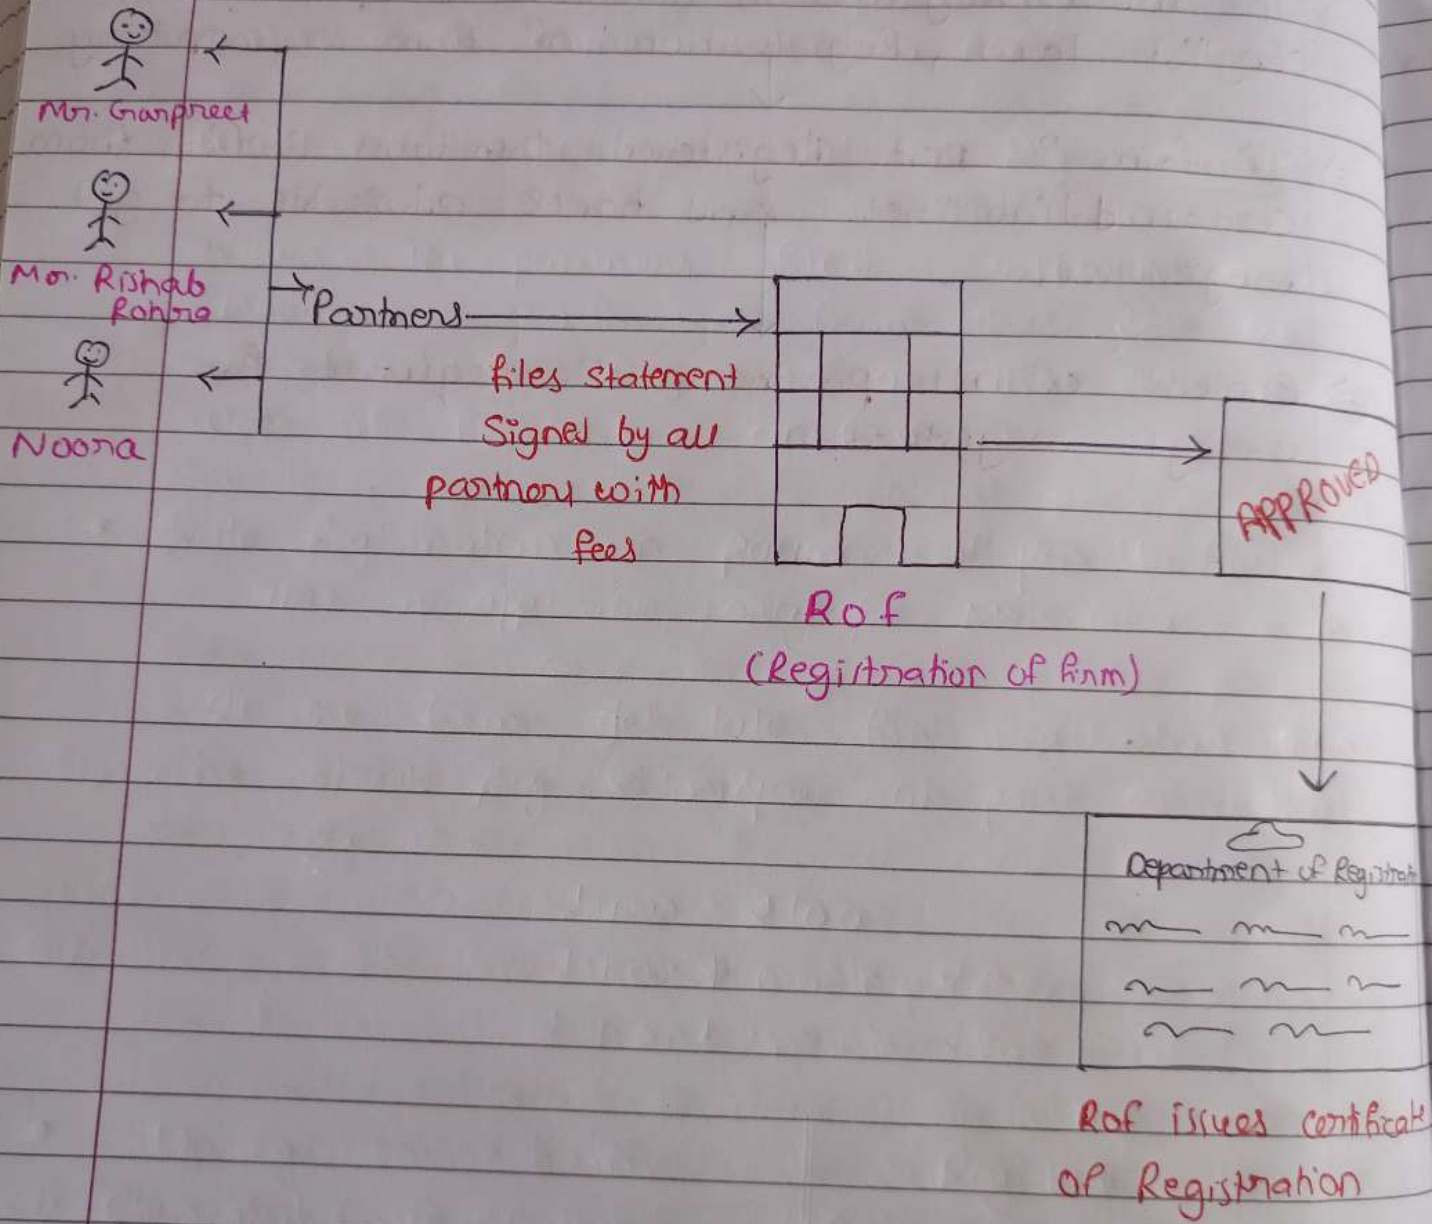 Mr. Garpreet
Mr. Rishab
Rohra
Partners
Noora
files statement
Signed by all
partners with
fees
APPROVED
Rof
(Registration of firm)
Department of Registrati
Rof issues certificate
of Registration